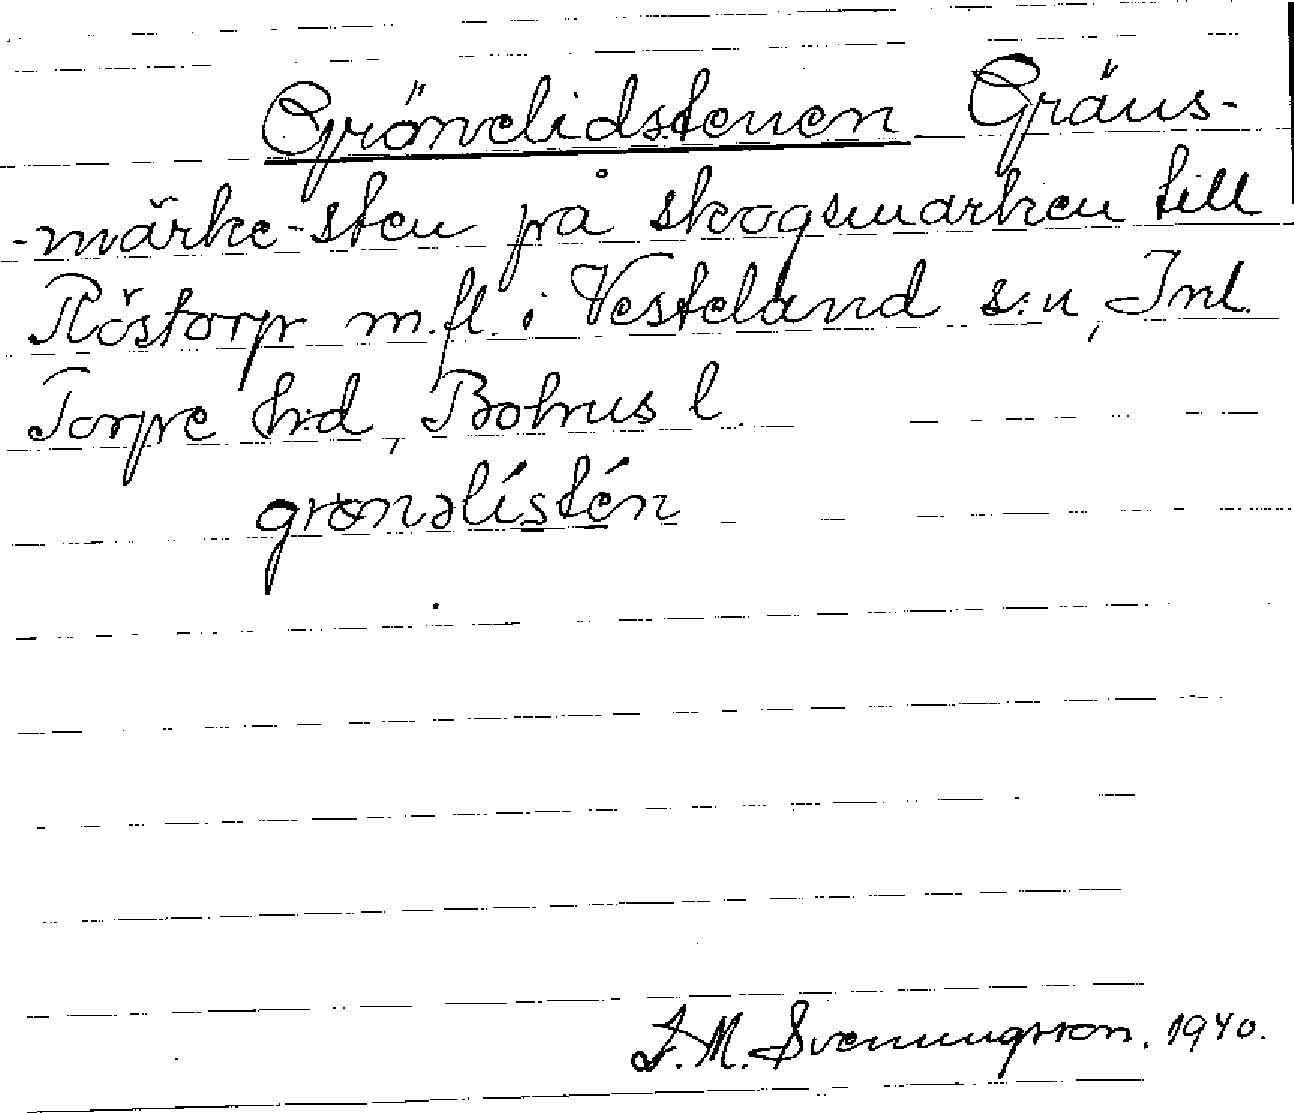 Grönelidstenen Gräns-
-märke-sten på skogsmarken till
Röstorp m.fl. i Vesteland s:n, Inl.
Torpe h:d, Bohus l
grønəlístén
J. M. Svenningsson. 1940.